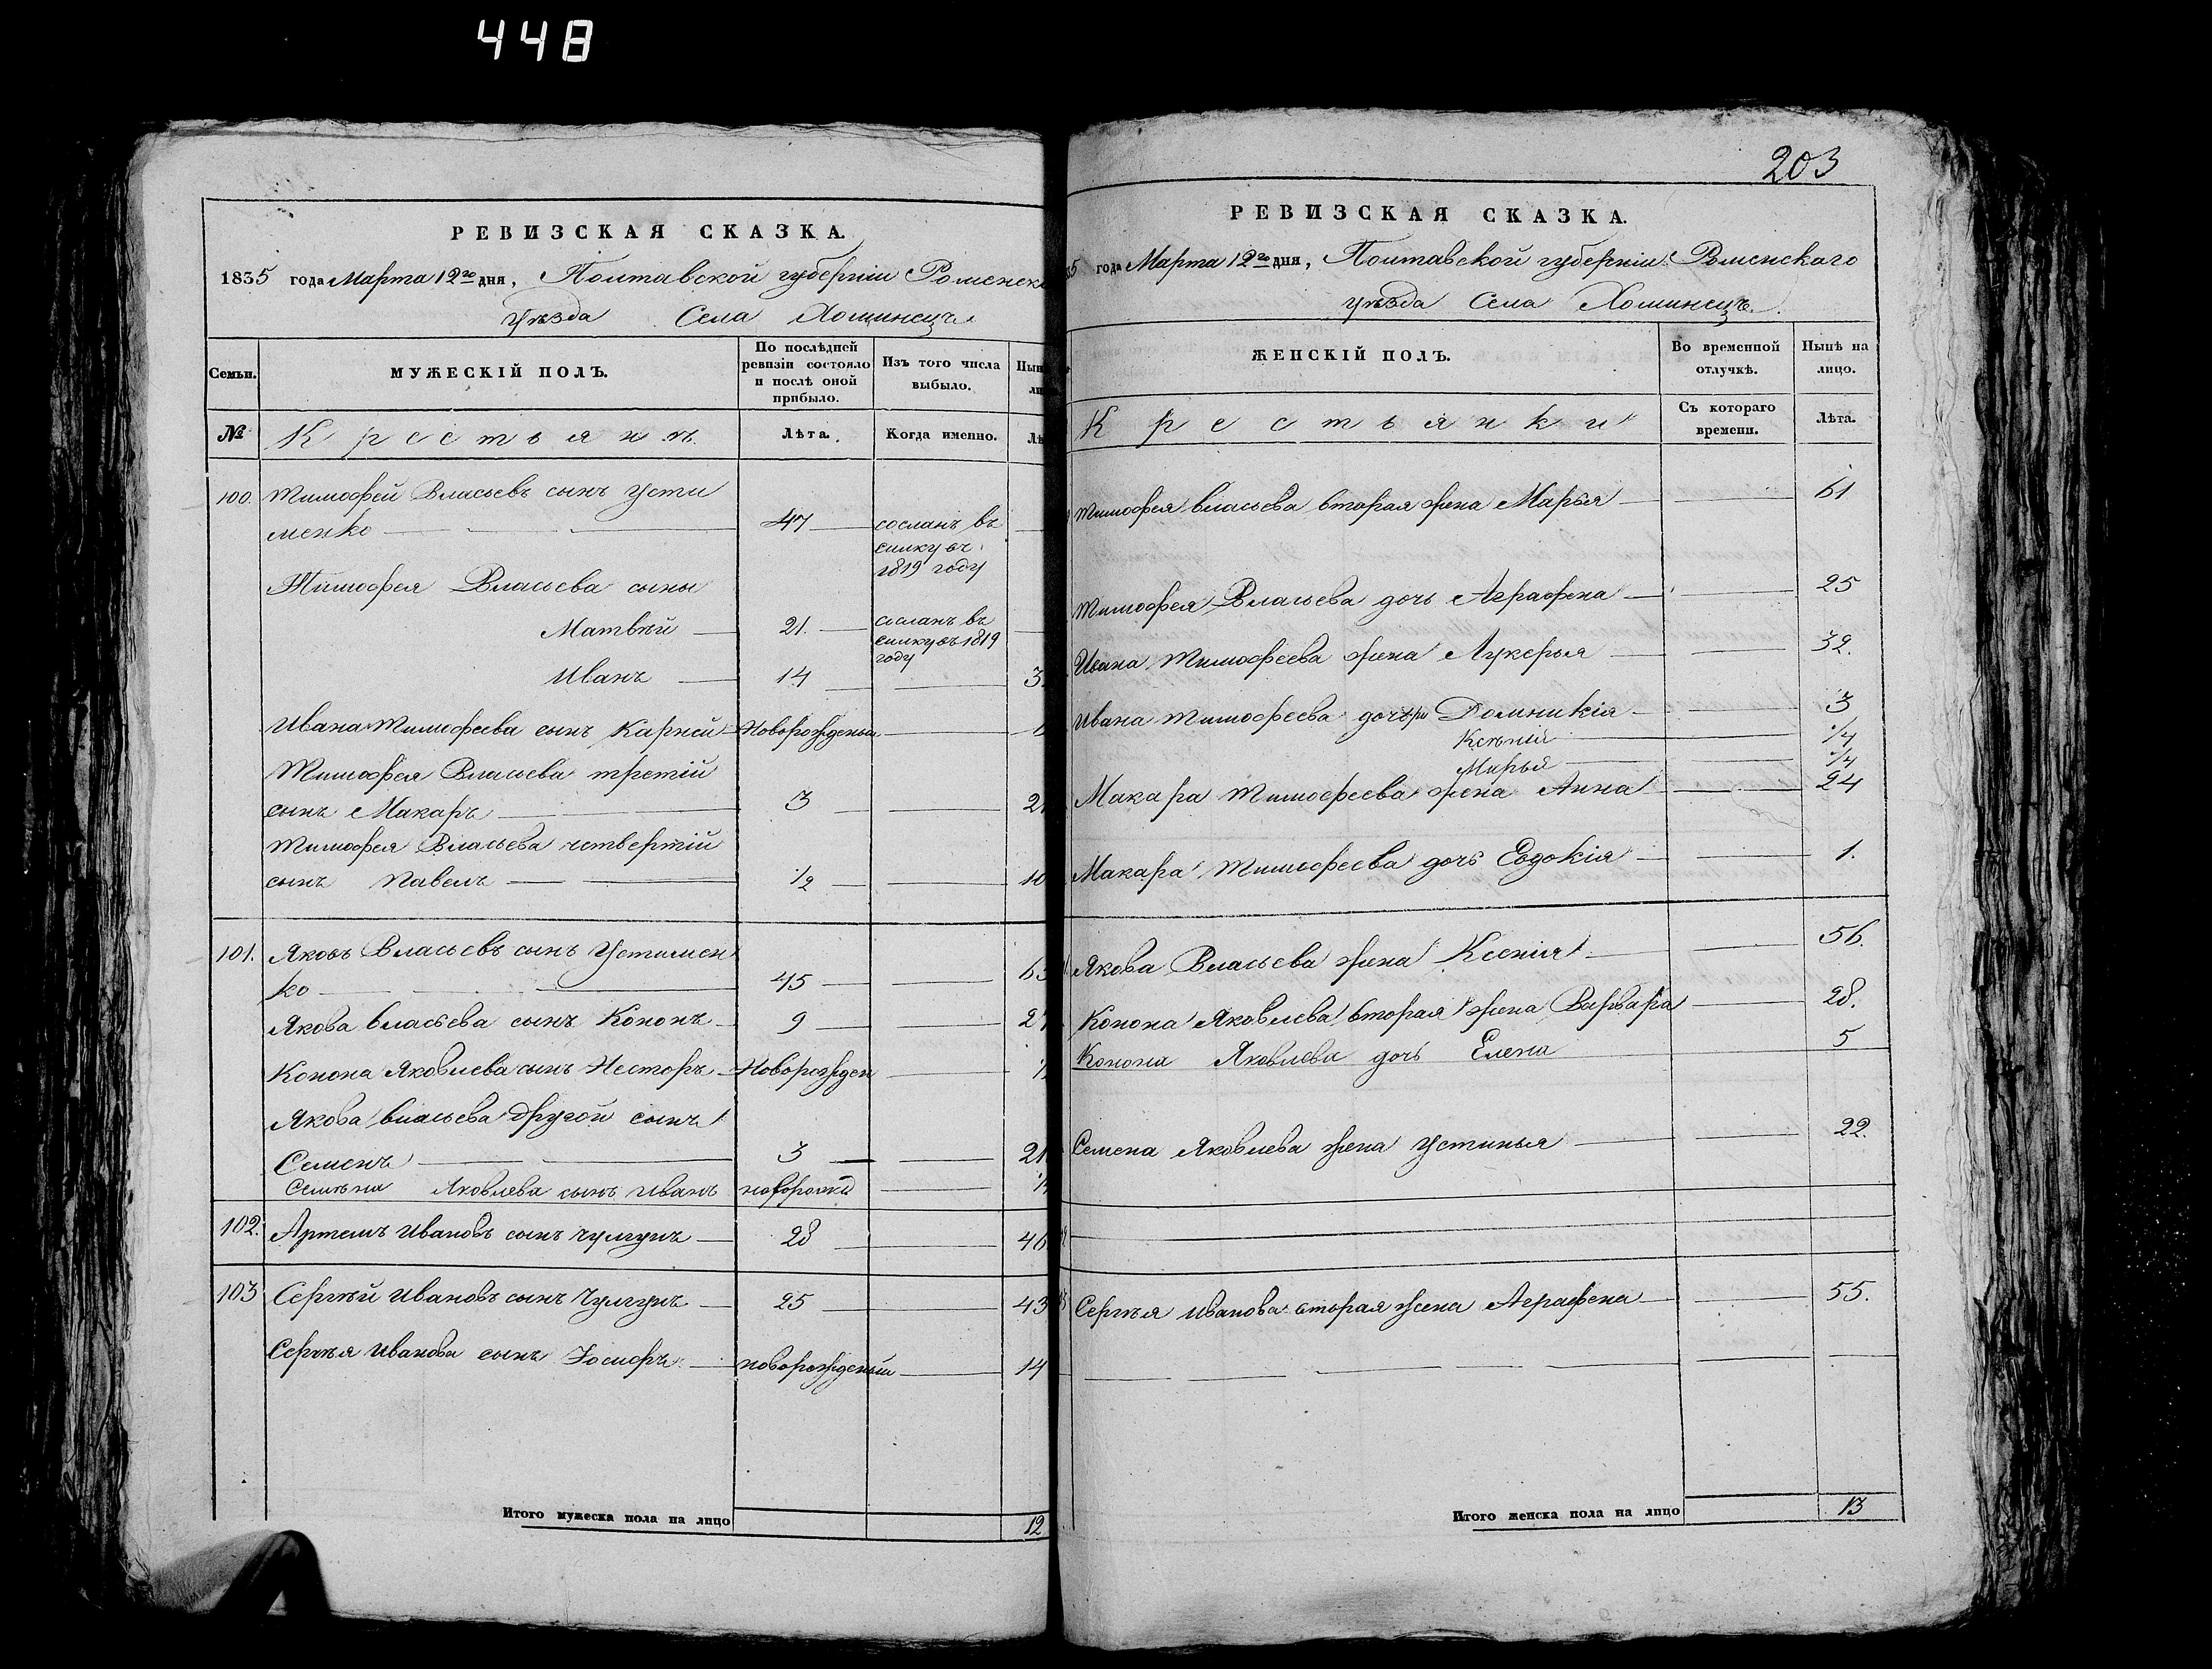 448
РЕВИЗСКАЯ СКАЗКА.
1835 года Марта 12го дня, Полтавской губерніи Роменск
Уѣзда Села Хоминецъ
Семьи.
МУЖЕСКІЙ ПОЛЪ.
По послѣдней
ревизіи состояло
и послѣ оной
прибыло.
Изъ того числа
выбыло.
№
Крестьянъ.
Лѣта.
Когда именно.
100. Тимофей Власьевъ сынъ Усти
менко 47 сосланъ въ
силку въ
1819 году
Тимофея Власьева сыны
Матвѣй 21. сосланъ въ
силку въ 1819
году
Иванъ 14 3
Ивана Тимофеева сынъ Карней Новорожденый
Тимофея Власьева третій
сынъ Макаръ 3 21
Тимофея Власьева четвертій
сынъ Павелъ 1/2 18
101. Яковъ Власьевъ сынъ Устимен
ко 45 63
Якова Власьева сынъ Кононъ 9 27
Конона Яковлева сынъ Несторъ Новорожден
Якова Власьева другой сынъ
Семенъ 3 21
Семѣна Яковлева сынъ Иванъ новорожд
102. Артемъ Ивановъ сынъ Чулгунъ 28 46
103 Сергѣй Ивановъ сынъ Чулгунъ 25 43
Сергѣя Иванова сынъ Іосифъ новорожденый 14
Итого мужеска пола на лицо 12
203
РЕВИЗСКАЯ СКАЗКА.
5 года Марта 12го дня, Полтавской губерніи Роменскаго
Уѣзда Села Хоминецъ.
ЖЕНСКІЙ ПОЛЪ.
Во временной
отлучкѣ.
Нынѣ на
лицо.
Крестьянки
Съ котораго
времени.
Лѣта.
Тимофея Власьева вторая жена Марья 61
Тимофея Власьева дочь Аграфена 25
Ивана Тимофеева жена Лукерья 32.
Ивана Тимофеева дочери Домникія 3
Ксѣнія 1/4
Марья 1/4
Макара Тимофеева жена Анна 24
Макара Тимофеева дочь Евдокія 1.
Якова Власьева жена Ксенія 56.
Конона Яковлева вторая жена Варвара 28.
Конона Яковлева дочь Елена 5
Семена Яковлева жена Устинья 22.
Сергѣя Иванова вторая жена Аграфена 55.
Итого женска пола на лицо 13